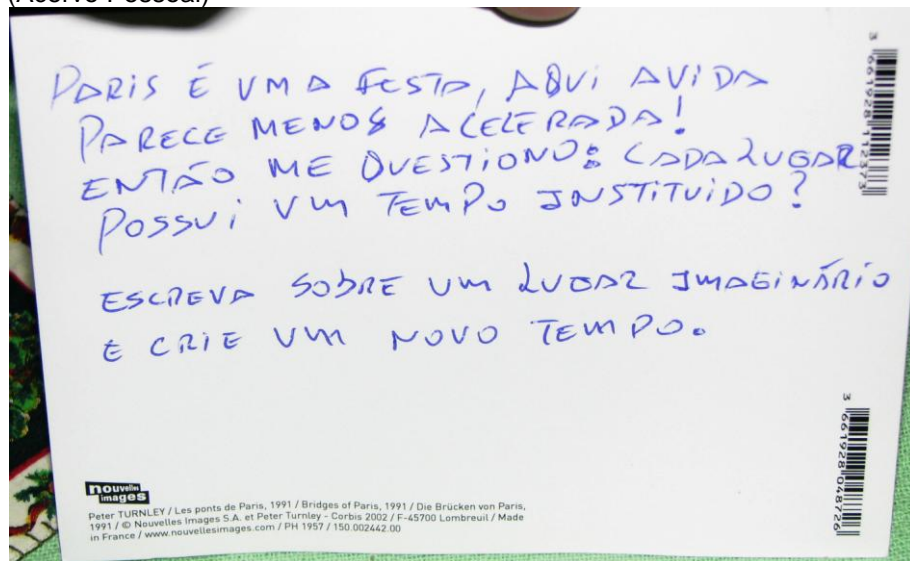 (Acervo Pessoal)
PARIS É UMA FESTA, AQUI A VIDA
PARECE MENOS ACELERADA!
ENTÃO ME QUESTIONO: CADA LUGAR
POSSUI UM TEMPO INSTITUIDO?
ESCREVA SOBRE UM LUGAR IMAGINÁRIO
E CRIE UM NOVO TEMPO.
3 661928 112373
3 661928 048726
nouvelles
images
Peter TURNLEY / Les ponts de Paris, 1991 / Bridges of Paris, 1991 / Die Brücken von Paris,
1991 / © Nouvelles Images S.A. et Peter Turnley - Corbis 2002 / F-45700 Lombreuil / Made
in France / www.nouvellesimages.com / PH 1957 / 150.002442.00